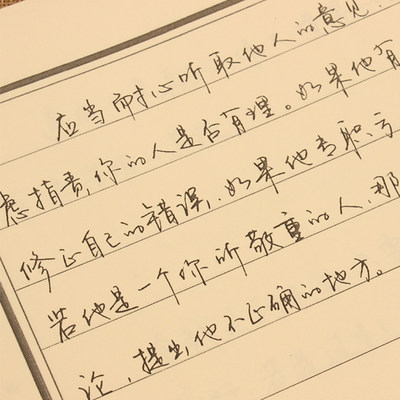 应当耐心听取他人的意见、
虑指责你的人是否有理。如果他有
修正自己的错误，如果他
若他是一个你所敬重的人，那
论，提出他不正确的地方。